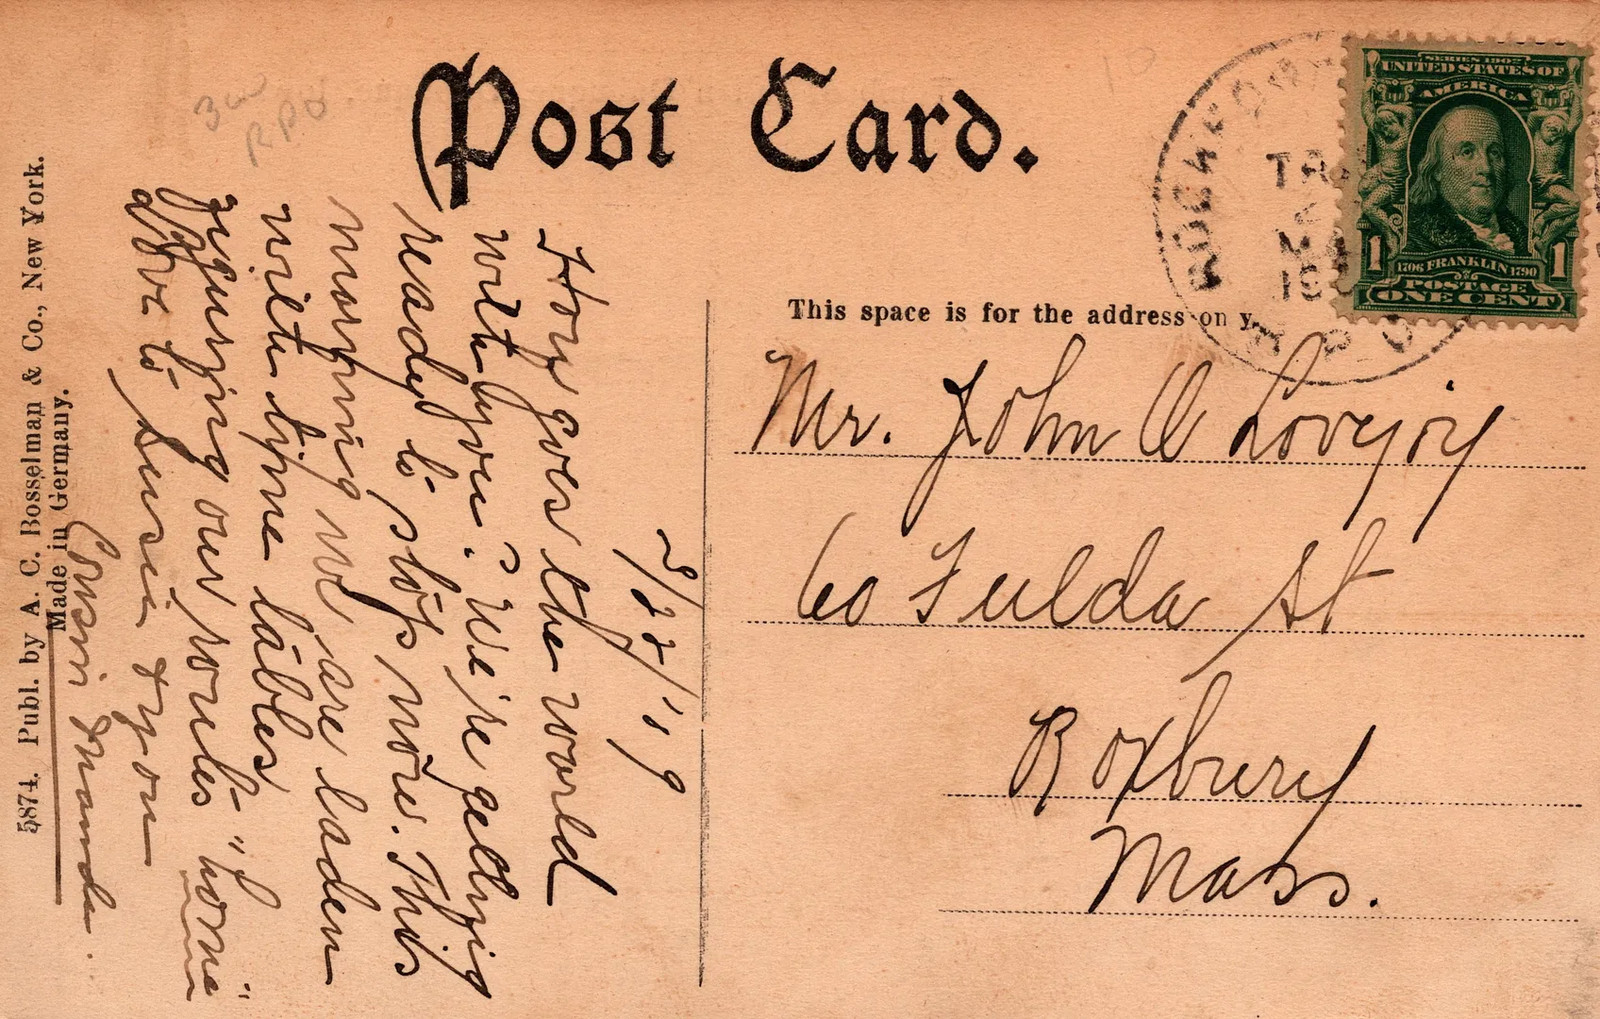 Post Card.
This space is for the address on
SERIES 1902
UNITED STATES OF
AMERICA
1706 FRANKLIN 1790
1 1
POSTAGE
ONE CENT
Mr. John O Lovejoy
60 Fulda St
Roxbury
Mass.
3/22/'19
How goes the world
with you? We're getting
ready to stop now. This
morning we are laden
with time tables
figuring our routes "home"
Love to Susie & you
Cousin
5874. Publ. by A. C. Bosselman & Co., New York.
Made in Germany.
RPO